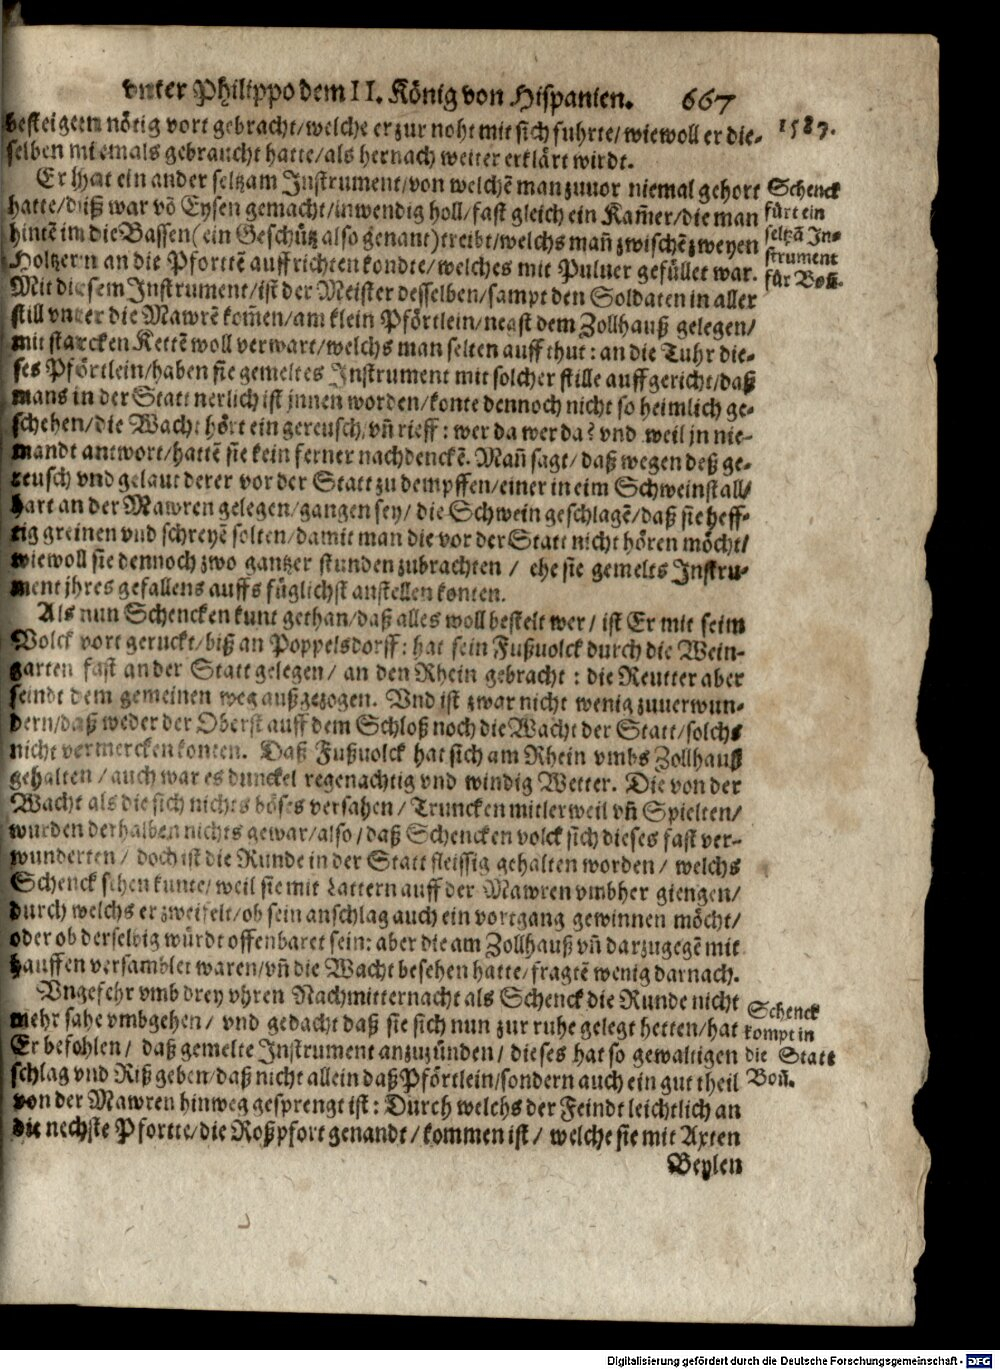 vnter Philippo dem II. König von Hispanien. 667
1587.
besteigern nötig vort gebracht/welche er zur noht mit sich fuhrte/wiewoll er die-
selben niemals gebraucht hatte/als hernach weiter erklärt wirdt.
Er hat ein ander seltzam Instrument/von welchẽ man zuuor niemal gehort
hatte/diß war võ Eysen gemacht/inwendig holl/fast gleich ein Kam̃er/die man
hintẽ in die Bassen (ein Geschütz also genant) treibt/welchs mañ zwischẽ zweyen
Holtzern an die Pforttẽ auffrichten kondte/welches mit Puluer gefüllet war.
Schenck
fürt ein
seltzã In-
strument
für Boñ.
Mit diesem Instrument/ist der Meister desselben/sampt den Soldaten in aller
still vnter die Mawrẽ kom̃en/am klein Pförtlein/negst dem Zollhauß gelegen/
mit starcken Kettẽ woll verwart/welchs man selten auff thut: an die Tuhr die-
ses Pförtlein/haben sie gemeltes Instrument mit solcher stille auffgericht/daß
mans in der Statt nerlich ist jnnen worden/konte dennoch nicht so heimlich ge-
schehen/die Wacht hört ein gereusch, vñ rieff: wer da wer da? vnd weil jn nie-
mandt antwort/hattẽ sie kein ferner nachdenckẽ. Mañ sagt/daß wegen deß ge-
reusch vnd gelaut derer vor der Statt zu dempffen/einer in eim Schweinstall/
hart an der Mawren gelegen/gangen sey/die Schwein geschlagẽ/daß sie heff-
tig greinen vnd schreyẽ solten/damit man die vor der Statt nicht hören möcht/
wiewoll sie dennoch zwo gantzer stunden zubrachten / ehe sie gemelts Instru-
ment jhres gefallens auffs füglichst anstellen konten.
Als nun Schencken kunt gethan/daß alles woll bestelt wer/ ist Er mit seim
Volck vort geruckt/biß an Poppelsdorff: hat sein Fußuolck durch die Wein-
garten fast an der Statt gelegen/ an den Rhein gebracht: die Reutter aber
seindt dem gemeinen weg außgezogen. Vnd ist zwar nicht wenig zuuerwun-
dern/daß weder der Oberst auff dem Schloß noch die Wacht der Statt/solchs
nicht vermercken konten. Daß Fußuolck hat sich am Rhein vmbs Zollhauß
gehalten/auch war es dunckel regenachtig vnd windig Wetter. Die von der
Wacht als die sich nichts böses versahen/Truncken mitlerweil vñ Spielten/
wurden derhalben nichts gewar/also/daß Schencken volck sich dieses fast ver-
wunderten/ doch ist die Runde in der Statt fleissig gehalten worden/ welchs
Schenck sehen kunte/weil sie mit Lattern auff der Mawren vmbher giengen/
durch welchs er zweifelt/ob sein anschlag auch ein vortgang gewinnen möcht/
oder ob derselbig würdt offenbaret sein: aber die am Zollhauß vñ darzugegẽ mit
hauffen versamblet waren/vñ die Wacht besehen hatte/fragtẽ wenig darnach.
Vngefehr vmb drey vhren Nachmitternacht als Schenck die Runde nicht
mehr sahe vmbgehen/ vnd gedacht daß sie sich nun zur ruhe gelegt hetten/hat
Er befohlen/ daß gemelte Instrument anzuzünden/dieses hat so gewaltigen
schlag vnd Riß geben/daß nicht allein daß Pförtlein/sondern auch ein gut theil
Schenck
kompt in
die Statt
Boñ.
von der Mawren hinweg gesprengt ist: Durch welchs der Feindt leichtlich an
die nechste Pfortte/die Roßpfort genandt/kommen ist/ welche sie mit Axten
Beylen
Digitalisierung gefördert durch die Deutsche Forschungsgemeinschaft - DFG